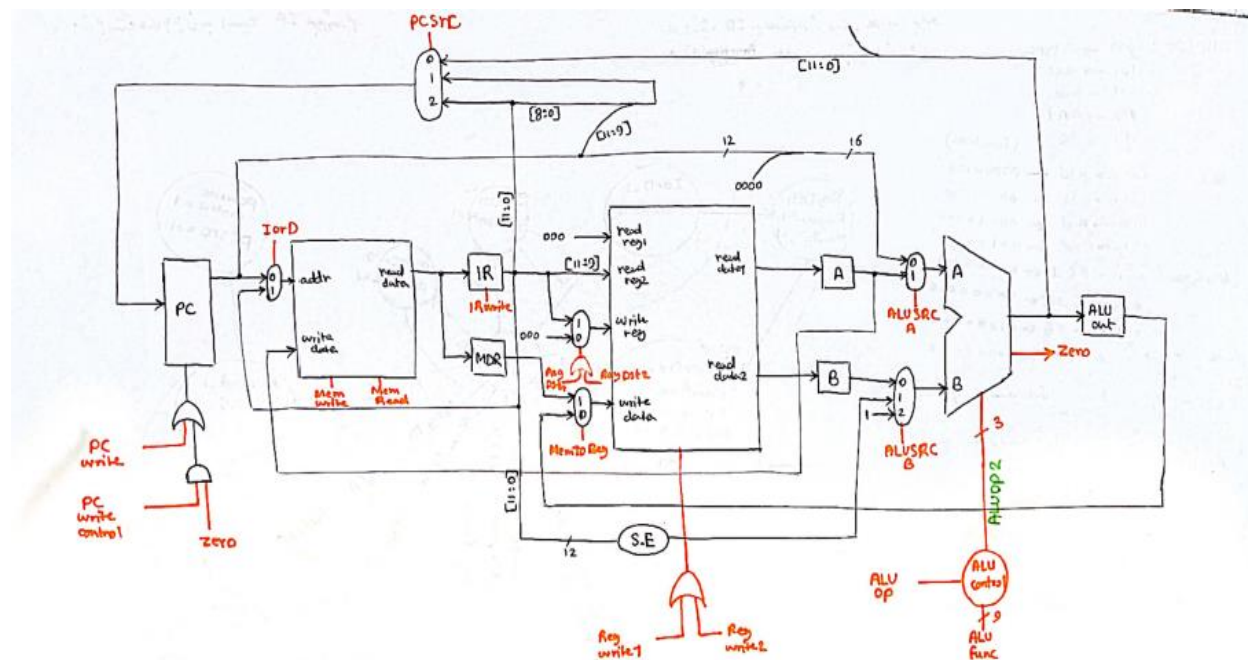 PCSrC
0
1
2
[11:0]
[8:0]
[11:9]
12
16
0000
[11:0]
IorD
0
1
addr
read data
write data
Mem write
Mem Read
PC
IR
IRwrite
MDR
000
[11:9]
000
1
0
Reg Dst1
Reg Dst2
1
0
MemToReg
read reg1
read reg2
write reg
write data
read data1
read data2
A
B
0
1
ALUSRC A
0
1
2
1
ALUSRC B
A
B
ALU out
Zero
3
ALUOP2
ALU control
ALU OP
9
ALU func
PC write
PC write control
Zero
[11:0]
12
S.E
Reg write1
Reg write2